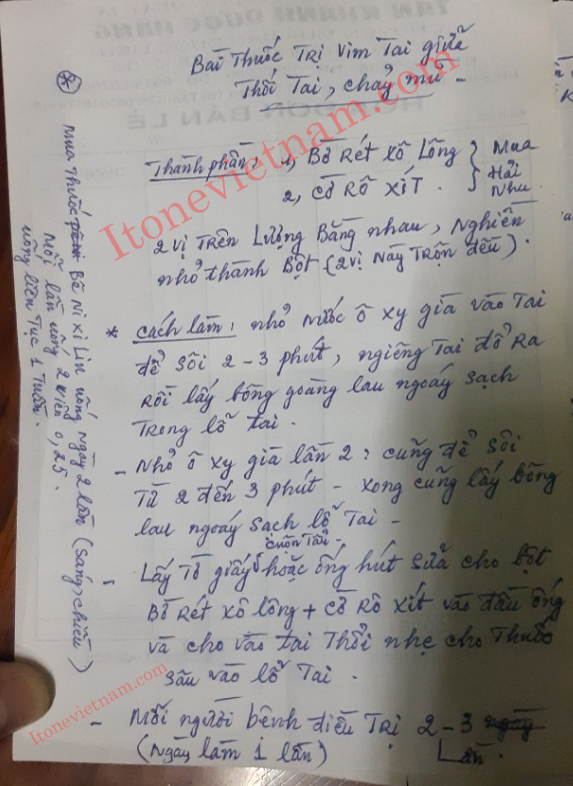 Bài Thuốc Trị Viêm Tai giữa
Thối Tai, chảy mủ -
Thành phần: 1, Bờ Rét xô Lông } Mua
2, Cờ Rô xít } Hải
Nhu
2 vị Trên Lượng Bằng nhau, Nghiền
nhỏ thành Bột (2 vị Này Trộn đều).
* cách làm: nhỏ nước ô xy già vào Tai
để sôi 2-3 phút, ngiêng Tai đổ Ra
Rồi lấy bông goàng lau ngoáy sạch
Trong lỗ tai.
- Nhỏ ô xy già lần 2: cũng để sôi
Từ 2 đến 3 phút - xong cũng lấy bông
lau ngoáy sạch lỗ Tai -
cuộn
- Lấy Tờ giấy hoặc ống hút sữa cho bột
Bờ Rét xô lông + Cờ Rô xít vào đầu ống
và cho vào tai Thổi nhẹ cho Thuốc
sâu vào lỗ Tai.
- Mỗi người bệnh điều Trị 2-3
lần.
(Ngày làm 1 lần)
* mua Thuốc Bê Ni xi Lin uống ngày 2 lần (sáng, chiều)
Mỗi lần uống 2 viên 0,25.
uống liên Tục 1 Tuần.
Itonevietnam.com
Itonevietnam.com